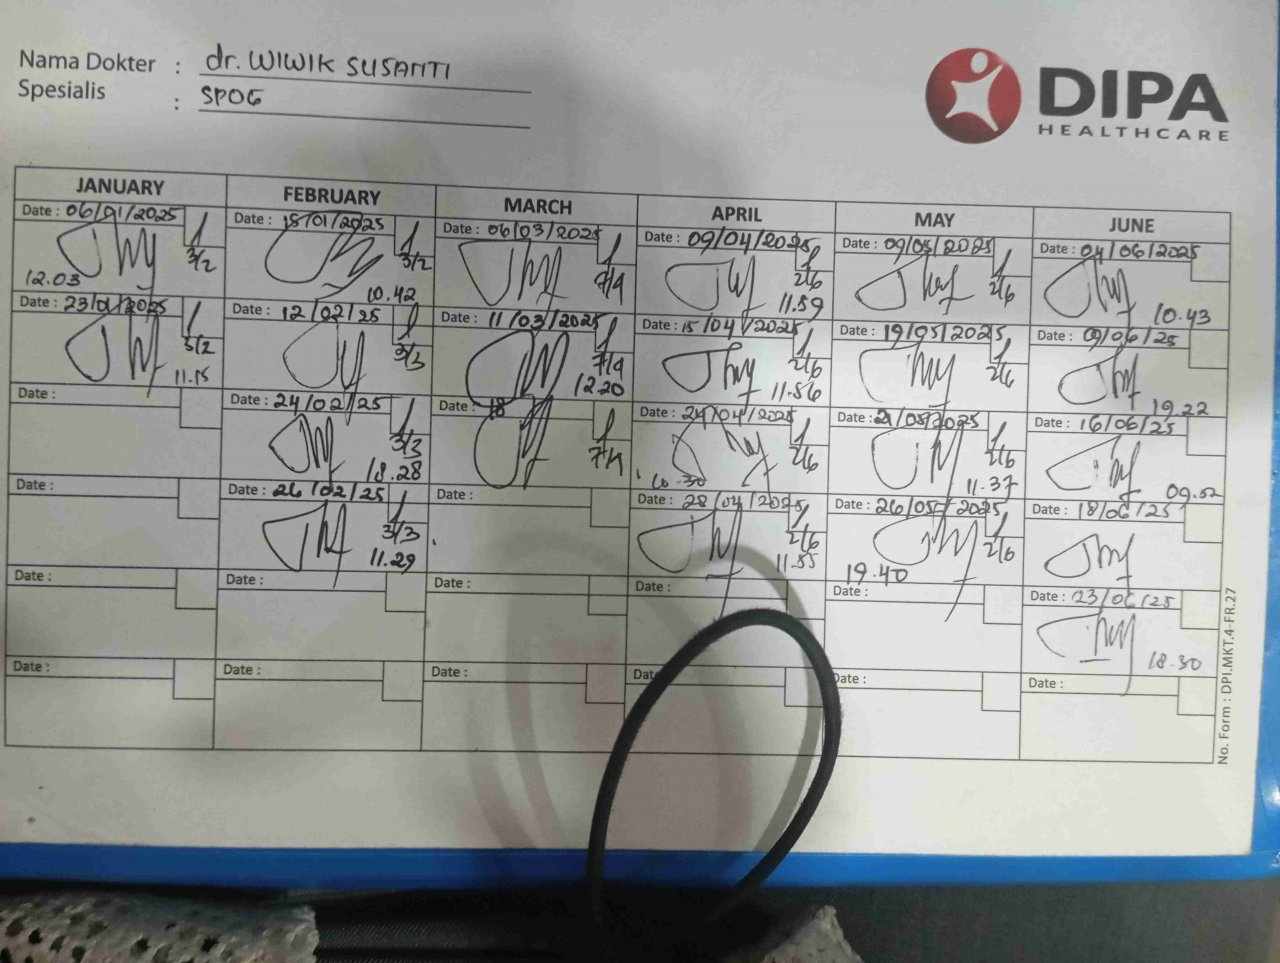 Nama Dokter : dr. WIWIK SUSANTI
Spesialis : SPOG
DIPA
HEALTHCARE
JANUARY FEBRUARY MARCH APRIL MAY JUNE
Date : 06/01/2025 1 Date : 15/01/2025 1 Date : 06/03/2025 1 Date : 09/04/2025 1 Date : 09/05/2025 1 Date : 04/06/2025
3/2 3/2 7/4 2/6 2/6
12.03 10.42 11.59 10.43
Date : 23/01/2025 1 Date : 12/02/25 1 Date : 11/03/2025 1 Date : 15/04/2025 1 Date : 19/05/2025 1 Date : 09/06/25
3/2 3/3 7/4 2/6 2/6
11.15 12.20 11.56 19.22
Date : Date : 24/02/25 1 Date : 18 1 Date : 24/04/2025 1 Date : 21/05/2025 1 Date : 16/06/25
3/3 7/4 2/6 2/6
18.28 11.37 09.52
Date : Date : 26/02/25 1 Date : Date : 28/04/2025 1 Date : 26/05/2025 1 Date : 18/06/25
3/3 2/6 2/6
11.29 11.55 19.40
Date : Date : Date : Date : Date : Date : 23/06/25
18.30
Date : Date : Date : Date : Date :
No. Form : DPI.MKT.4-FR.27